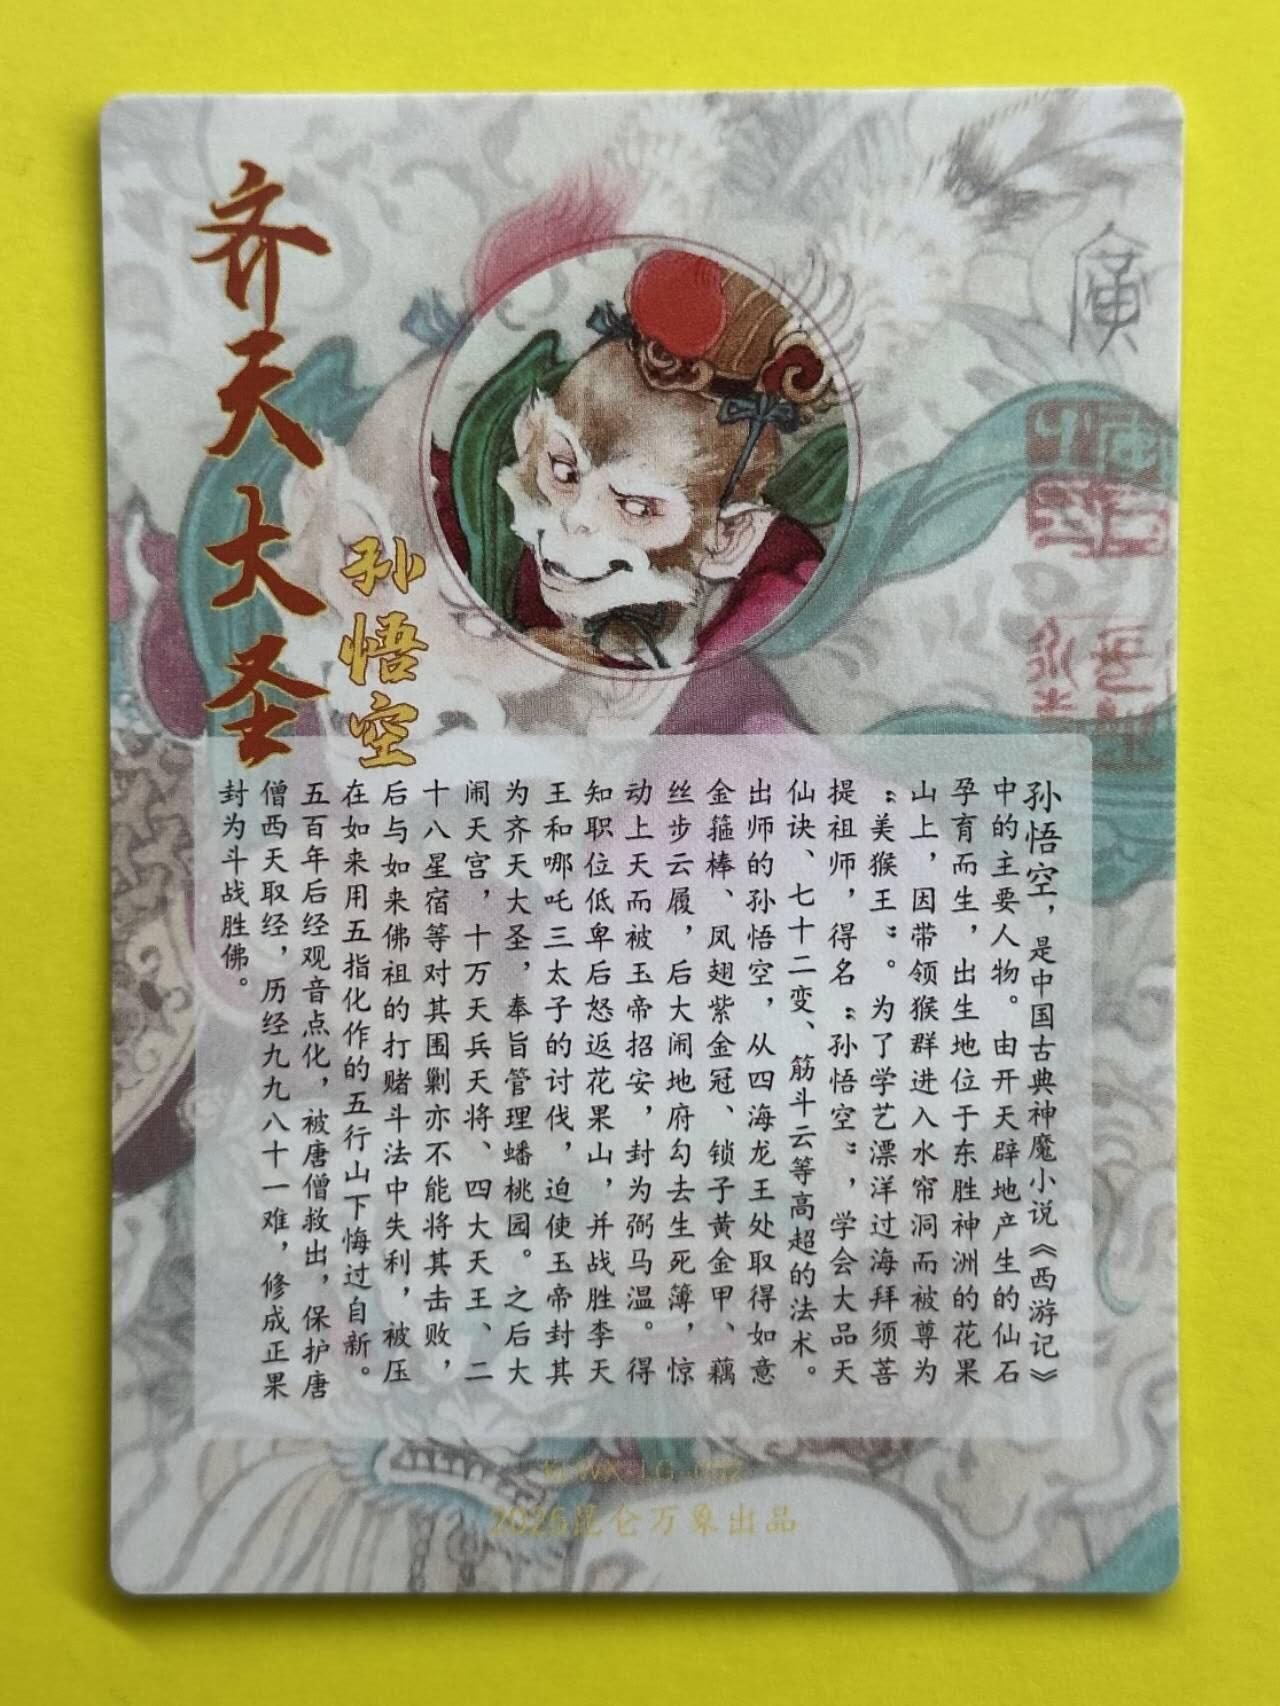 齐天大圣
孙悟空
孙悟空，是中国古典神魔小说《西游记》
中的主要人物。由开天辟地产生的仙石
孕育而生，出生地位于东胜神洲的花果
山上，因带领猴群进入水帘洞而被尊为
“美猴王”。为了学艺漂洋过海拜须菩
提祖师，得名“孙悟空”，学会大品天
仙诀、七十二变、筋斗云等高超的法术。
出师的孙悟空，从四海龙王处取得如意
金箍棒、凤翅紫金冠、锁子黄金甲、藕
丝步云履，后大闹地府勾去生死簿，惊
动上天而被玉帝招安，封为弼马温。得
知职位低卑后怒返花果山，并战胜李天
王和哪吒三太子的讨伐，迫使玉帝封其
为齐天大圣，奉旨管理蟠桃园。之后大
闹天宫，十万天兵天将、四大天王、二
十八星宿等对其围剿亦不能将其击败，
后与如来佛祖的打赌斗法中失利，被压
在如来用五指化作的五行山下悔过自新。
五百年后经观音点化，被唐僧救出，保护唐
僧西天取经，历经九九八十一难，修成正果
封为斗战胜佛。
2025昆仑万象出品